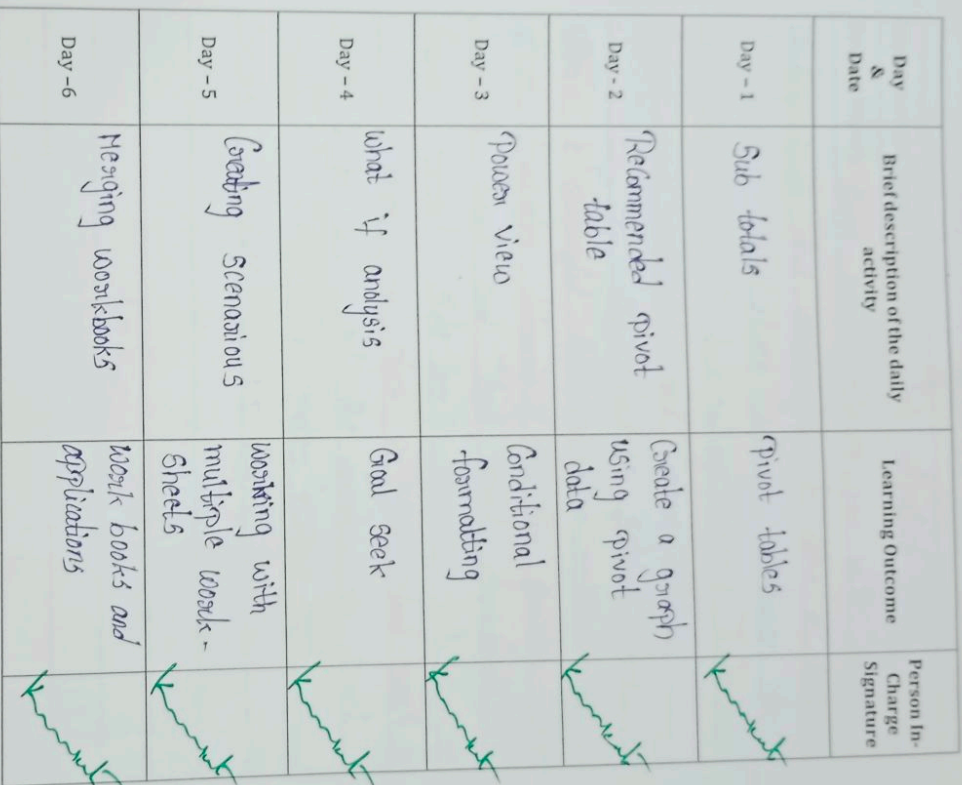 Day
&
Date
Brief description of the daily
activity
Learning Outcome
Person In-
Charge
Signature
Day - 1
Sub totals
pivot tables
Day - 2
Recommended pivot
table
Create a graph
using pivot
data
Day - 3
Power View
Conditional
formatting
Day - 4
What if analysis
Goal seek
Day - 5
Creating scenarious
working with
multiple work-
sheets
Day - 6
Merging workbooks
Work books and
applications